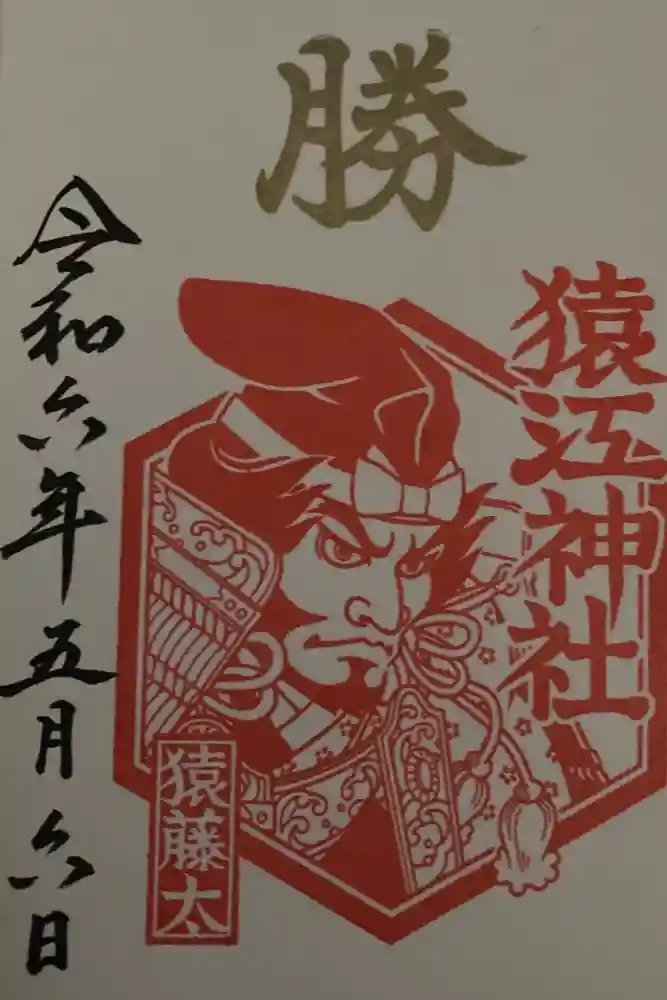 勝
猿江神社
猿藤太
令和六年五月六日